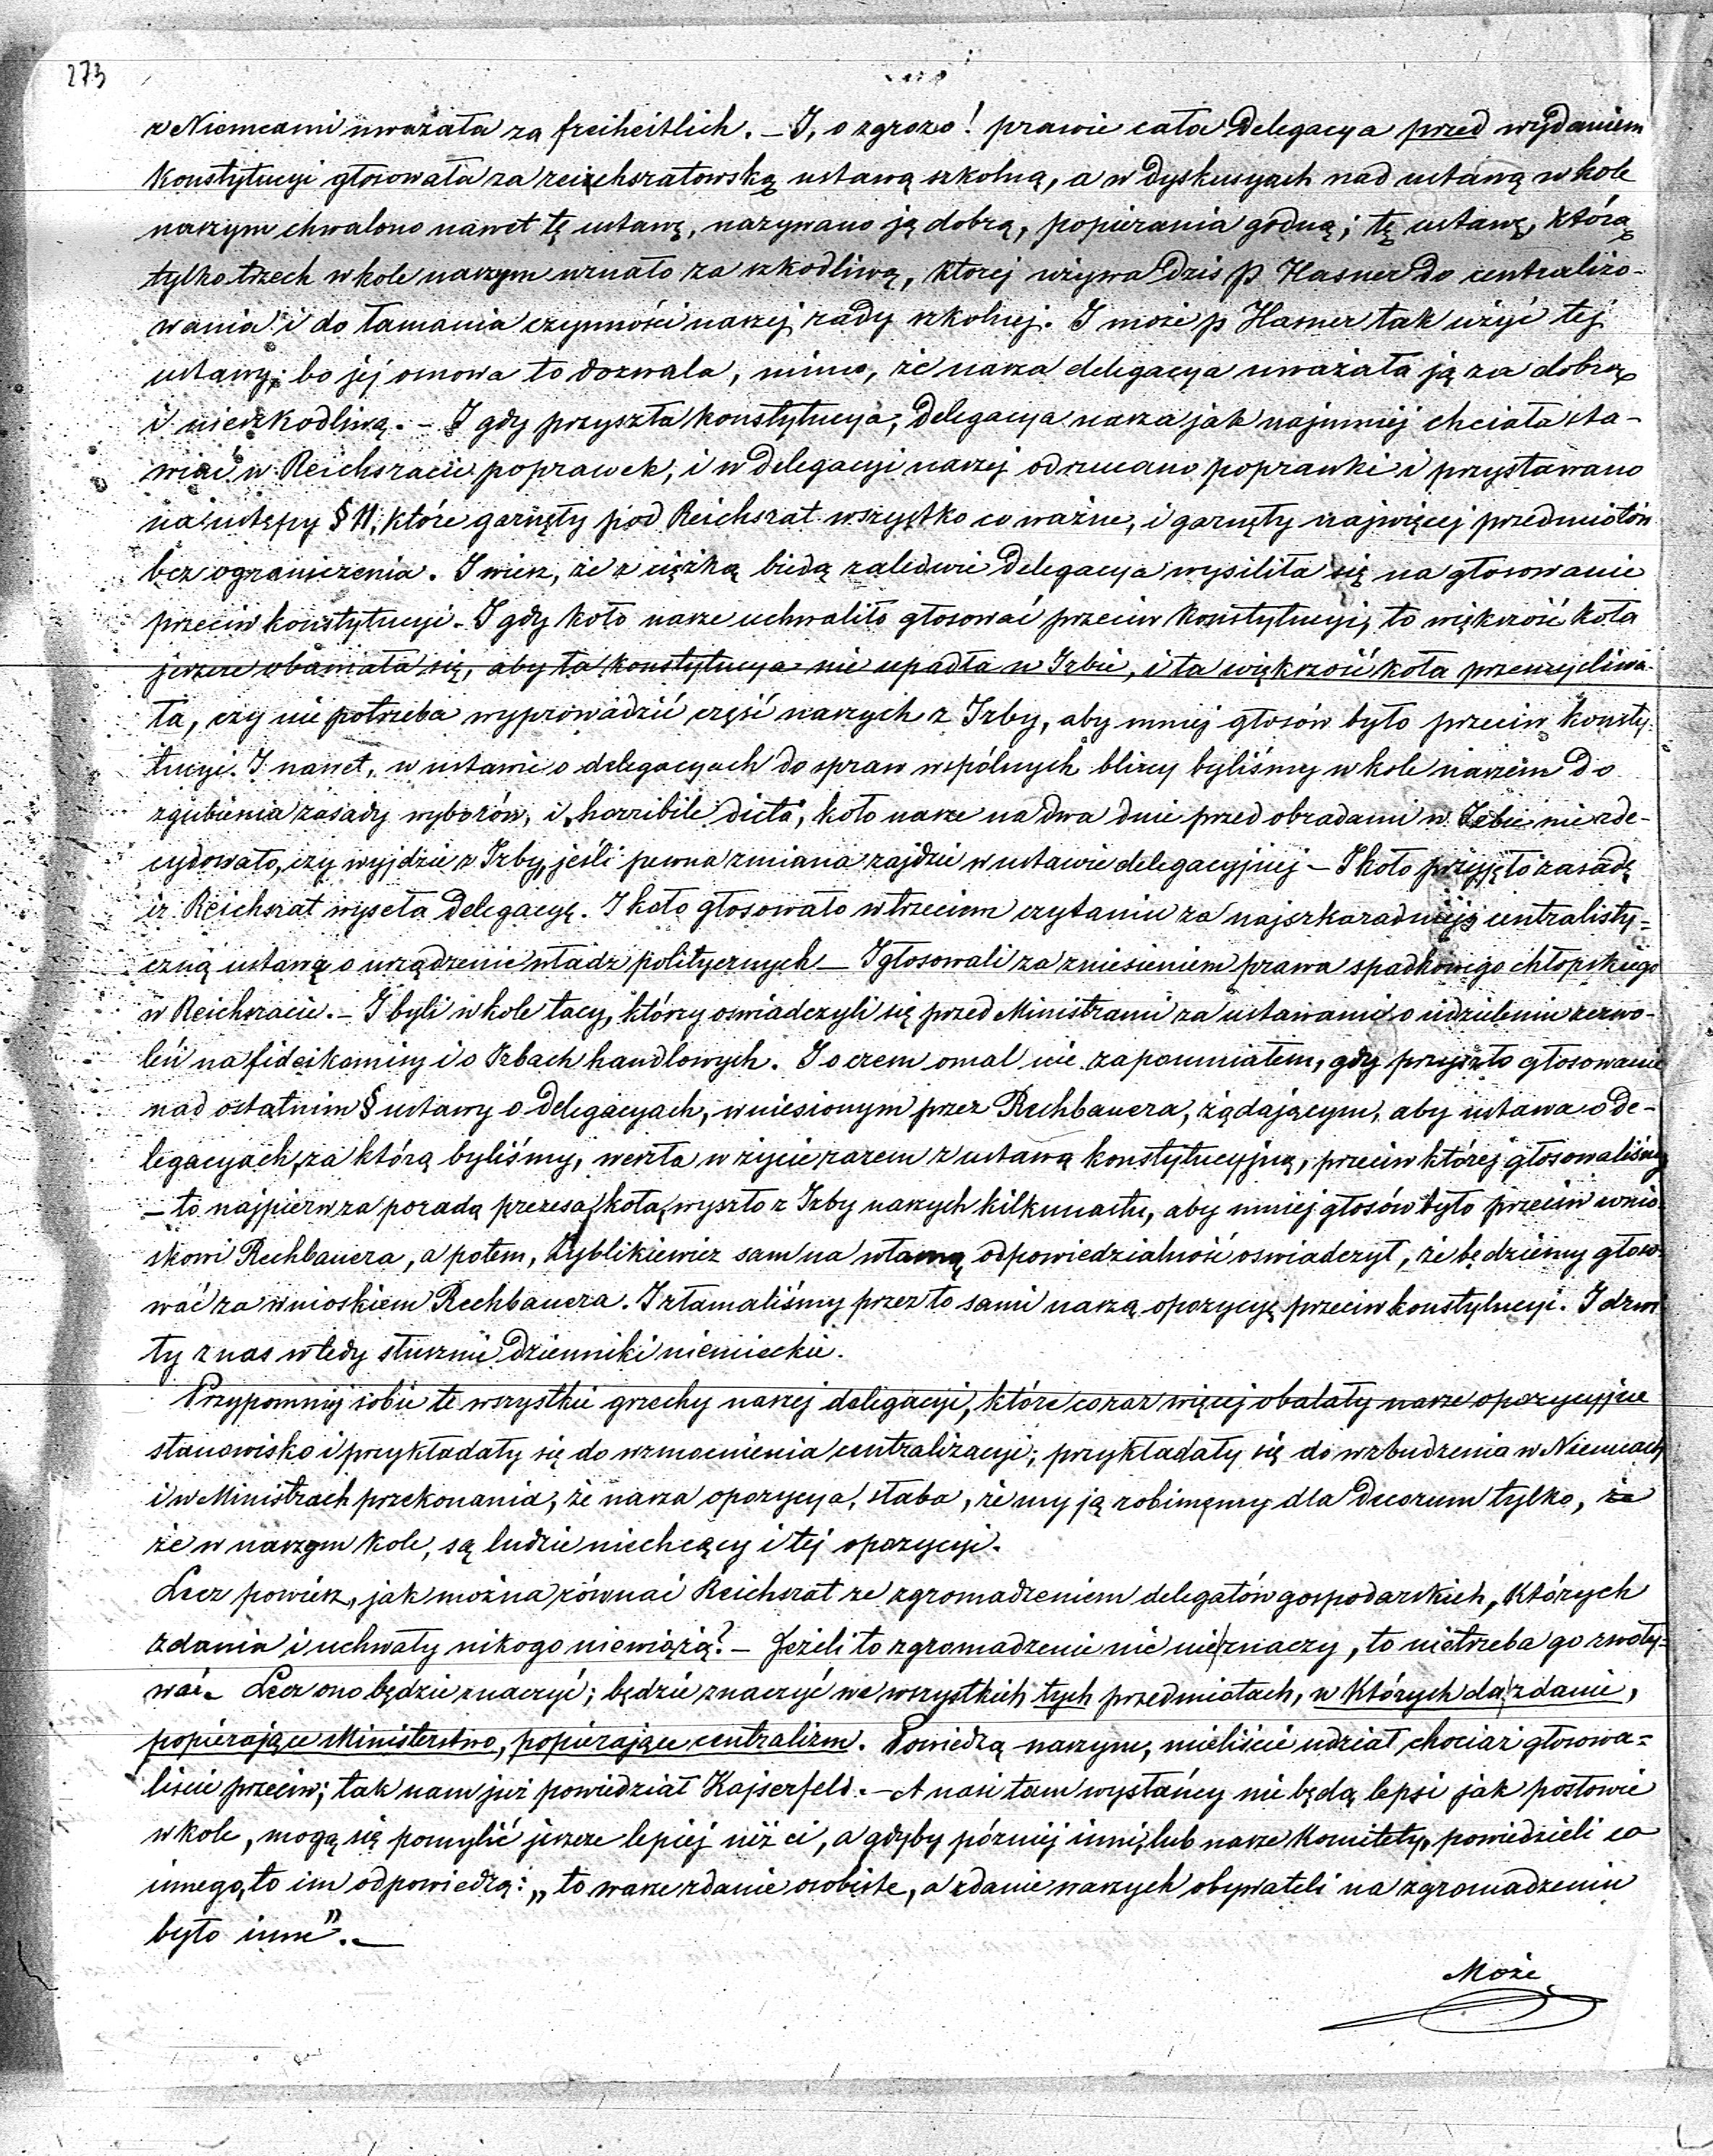 273
z Niemcami uważała za freiheitlich. – I, o zgrozo! prawie cała Delegacya przed wydaniem
Konstytucyi głosowała za reichsratowską ustawą szkolną, a w dyskusyach nad ustawą w kole
naszym chwalono nawet tę ustawę, nazywano ją dobrą, popierania godną; tę ustawę, którą
tylko trzech w kole naszym uznało za szkodliwą, ktorej używa dziś p Hasner do centralizo-
wania i do łamania czynności naszej rady szkolnej. I może p Hasner tak użyć tej
ustawy; bo jej osnowa to dozwala, mimo, że nasza delegacya uważała ją za dobrą
i nieszkodliwą. – I gdy przyszła konstytucya, Delegacya nasza jak najmniej chciała sta-
wiać w Reichsracie poprawek, i w delegacyi naszej odrzucano poprawki i przystawano
na ustępy § 11, które garnęły pod Reichsrat wszystko co ważne, i garnęły najwięcej przedmiotów
bez ograniczenia. I wiesz, że z ciężką biedą zaledwie Delegacya wysiliła się na głosowanie
przeciw konstytucyi. I gdy koło nasze uchwaliło głosować przeciw Konstytucyi, to większość koła
jeszcze obawiała się, aby ta konstytucya nie upadła w Izbie, i ta większość koła przemyśliwa-
ła, czy nie potrzeba wyprowadzić część naszych z Izby, aby mniej głosów było przeciw konsty-
tucyi. I nawet, w ustawie o delegacyach do spraw wspólnych blizcy byliśmy w kole naszem do
zgubienia zasady wyborów, i, horribile dictu, koło nasze na dwa dnie przed obradami w Izbie nie zde-
cydowało, czy wyjdzie z Izby, jeśli pewna zmiana zajdzie w ustawie delegacyjnej – I koło przyjęło zasadę
iż Reichsrat wyseła Delegacyę. I koło głosowało w trzeciem czytaniu za najszkaradniejszą centralisty-
czną ustawą o urządzenie władz politycznych – I głosowali za zniesieniem prawa spadkowego chłopskiego
w Reichsracie. – I byli w kole tacy, którzy oswiadczyli się przed Ministrami za ustawami o udzieleniu zezwo-
leń na fideikomisy i o Izbach handlowych. I o czem omal nie zapomniałem, gdy przyszło głosowanie
nad ostatnim § ustawy o Delegacyach, wniesionym przez Rechbauera, żądającym, aby ustawa o de-
legacyach, za którą byliśmy, weszła w życie razem z ustawą konstytucyjną, przeciw której głosowaliśmy
– to najpierw za poradą prezesa koła, wyszło z Izby naszych kilkunastu, aby mniej głosów było przeciw wnio-
skowi Rechbauera, a potem, Zyblikiewicz sam na własną odpowiedzialność oswiadczył, że będziemy głoso-
wać za wnioskiem Rechbauera. I złamaliśmy przez to sami naszą opozycyę przeciw konstytucyi. I drwi
ły z nas wtedy słusznie Dzienniki niemieckie.
Przypomnij sobie te wszystkie grzechy naszej delegacyi, które coraz więcej obalały nasze opozycyjne
stanowisko i przykładały się do wzmocnienia centralizacyi; przykładały się do wzbudzenia w Niemcach
i w Ministrach przekonania, że nasza opozycya, słaba, że my ją robimy dla decorum tylko, że
że w naszym kole, są ludzie niechcący i tej opozycyi.
Lecz powiesz, jak można równać Reichsrat ze zgromadzeniem delegatów gospodarskich, których
zdania i uchwały nikogo niewiążą? – Jeżeli to zgromadzenie nic nieznaczy, to nietrzeba go zwoły-
wać. Lecz ono będzie znaczyć; będzie znaczyć we wszystkich tych przedmiotach, w których da zdanie,
popierające Ministerstwo, popierające centralizm. Powiedzą naszym, mieliście udział chociaż głosowa-
liście przeciw; tak nam już powiedział Kajserfeld. – A nasi tam wysłańcy nie będą lepsi jak posłowie
w kole, mogą się pomylić jeszcze lepiej niż ci, a gdyby później inni, lub nasze Komitety, powiedzieli co
innego, to im odpowiedzą: „to wasze zdanie osobiste, a zdanie waszych obywateli na zgromadzeniu
było inne”. –
Może